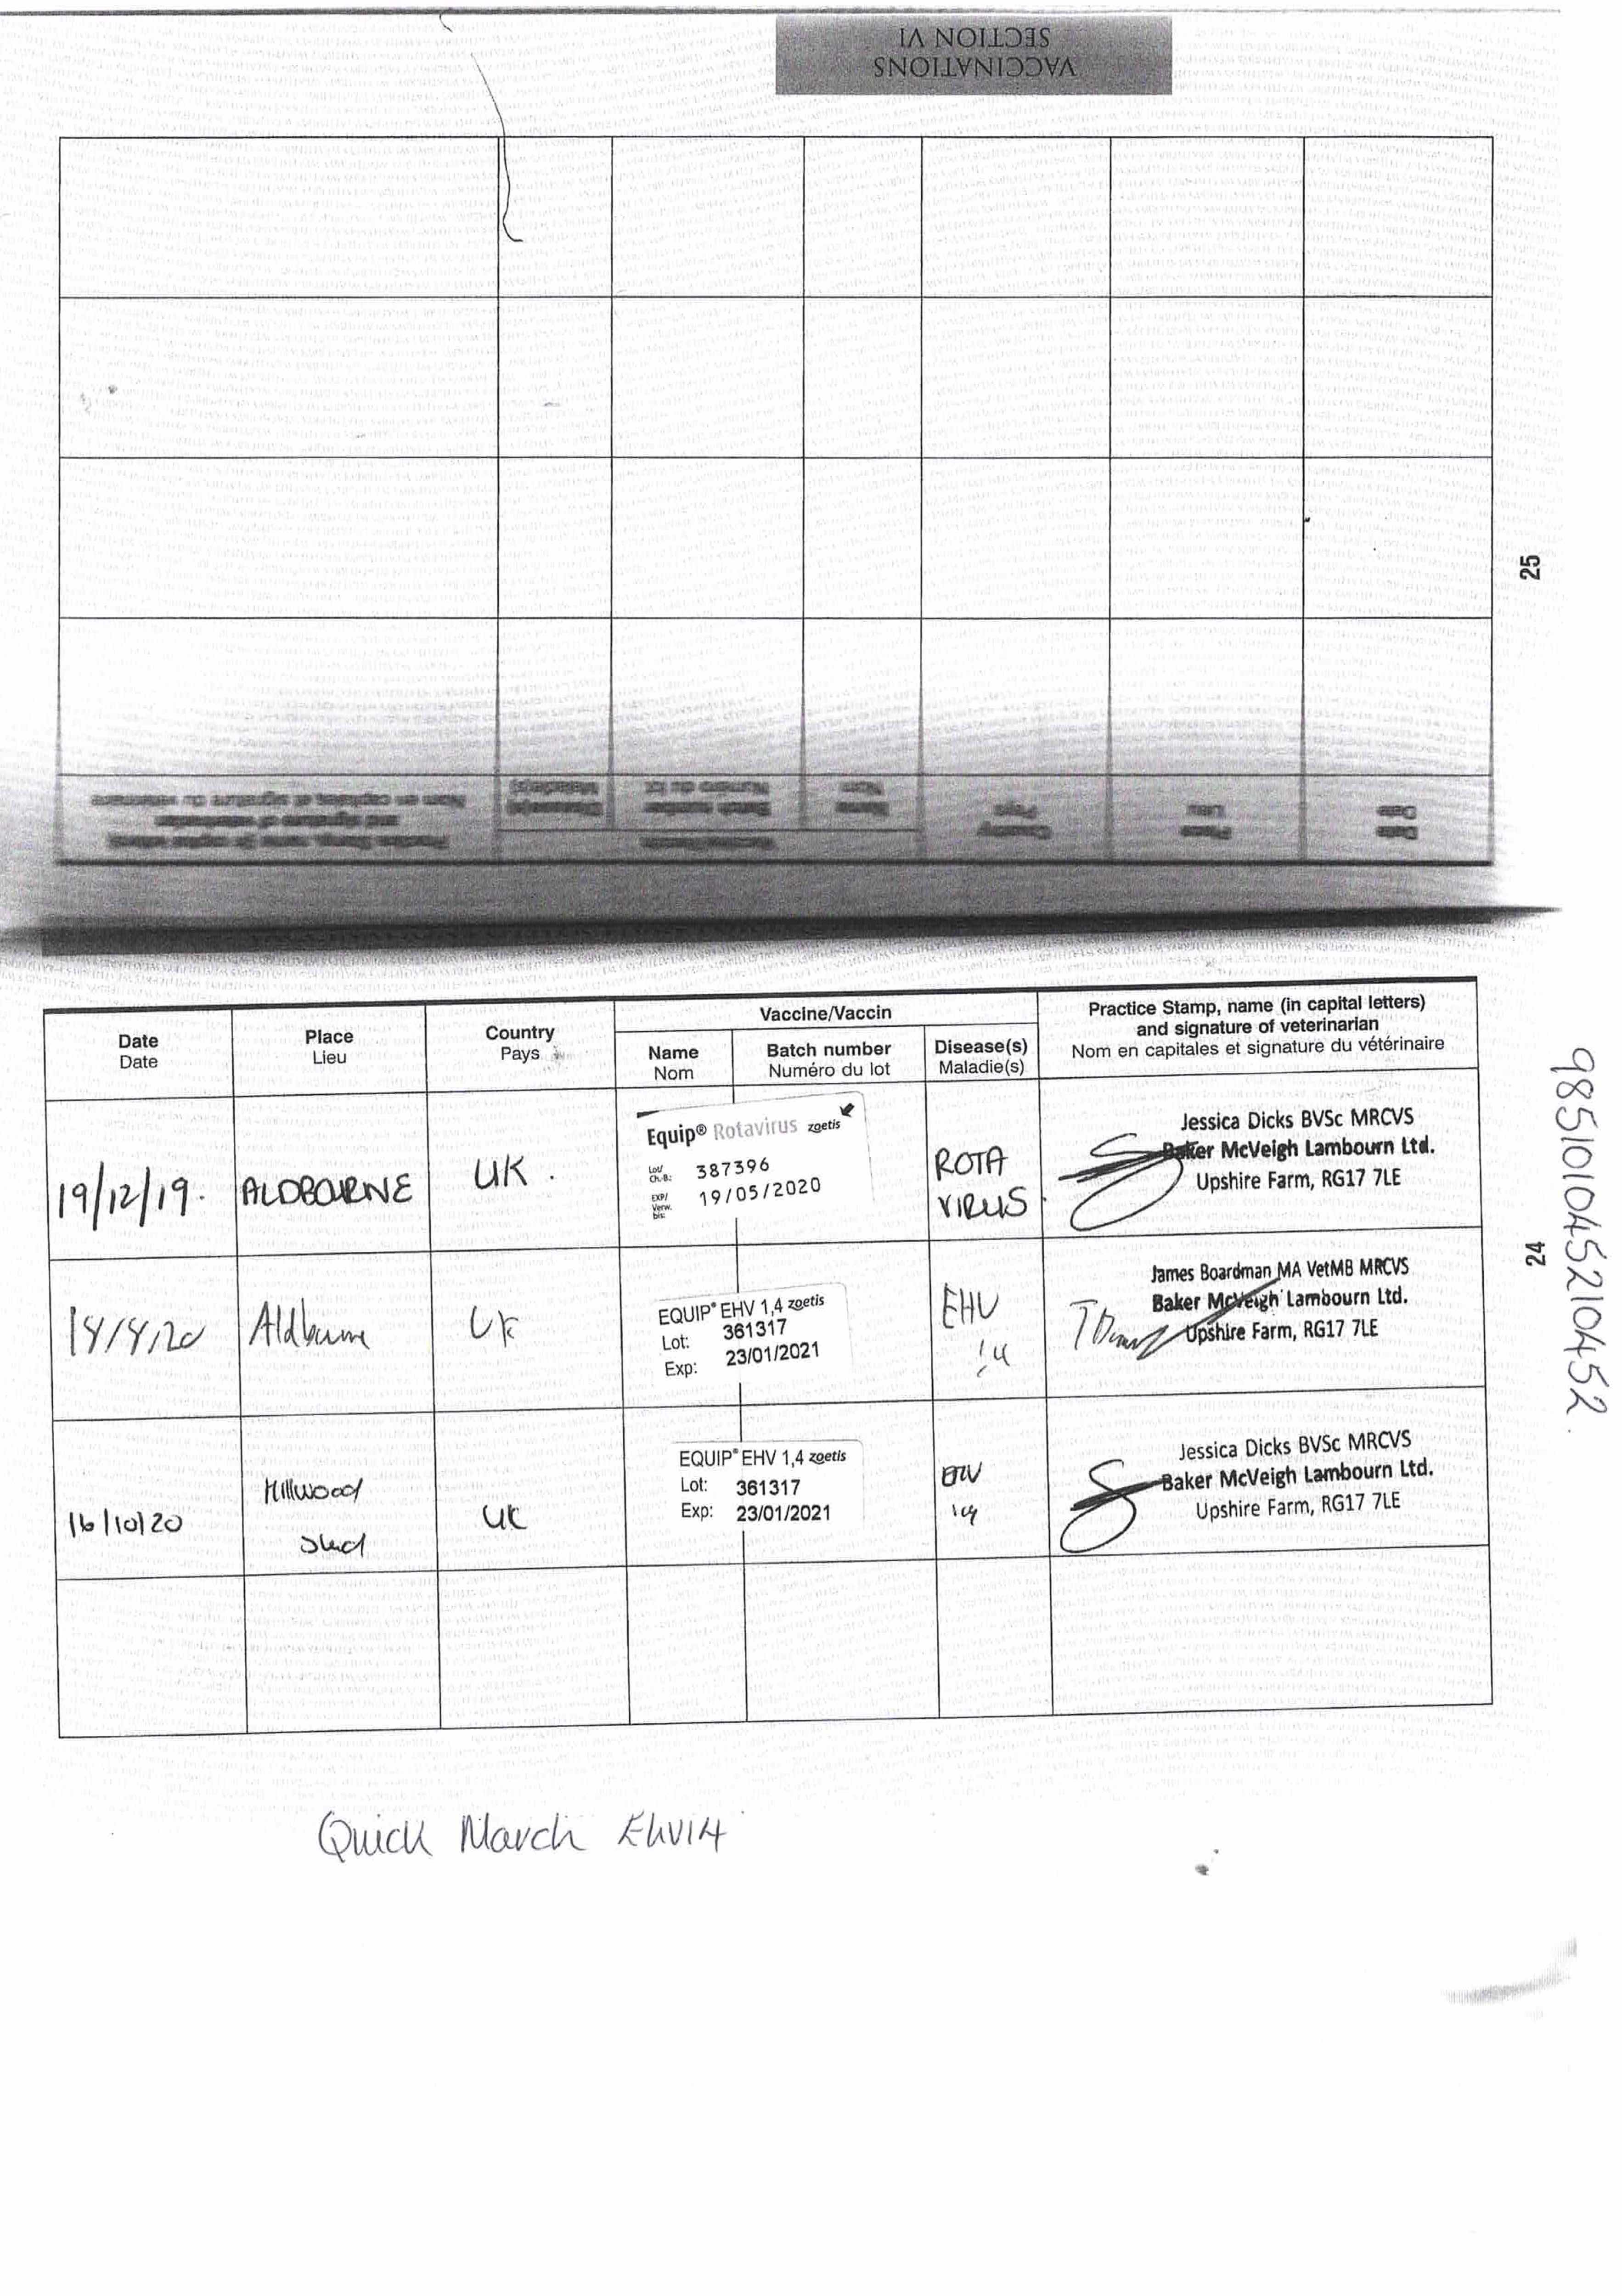 VACCINATIONS
SECTION VI
25
Practice Stamp, name (in capital letters)
and signature of veterinarian
Nom en capitales et signature du vétérinaire
Vaccine/Vaccin
Disease(s)
Maladie(s)
Batch number
Numéro du lot
Name
Nom
Country
Pays
Place
Lieu
Date
Date
Date
Date
Place
Lieu
Country
Pays
Vaccine/Vaccin
Name
Nom
Batch number
Numéro du lot
Disease(s)
Maladie(s)
Practice Stamp, name (in capital letters)
and signature of veterinarian
Nom en capitales et signature du vétérinaire
19/12/19.
ALDBOURNE
UK.
Equip® Rotavirus zoetis
Lot/
Ch.-B.: 387396
EXP/
Verw.
bis: 19/05/2020
ROTA
VIRUS
Jessica Dicks BVSc MRCVS
Baker McVeigh Lambourn Ltd.
Upshire Farm, RG17 7LE
Aldbourne
UK
EQUIP® EHV 1,4 zoetis
Lot: 361317
Exp: 23/01/2021
EHV
1,4
James Boardman MA VetMB MRCVS
Baker McVeigh Lambourn Ltd.
Upshire Farm, RG17 7LE
16/10/20
Hillwood
Stud
UK
EQUIP® EHV 1,4 zoetis
Lot: 361317
Exp: 23/01/2021
EHV
1,4
Jessica Dicks BVSc MRCVS
Baker McVeigh Lambourn Ltd.
Upshire Farm, RG17 7LE
24
985101045210452.
Quick March EHV14